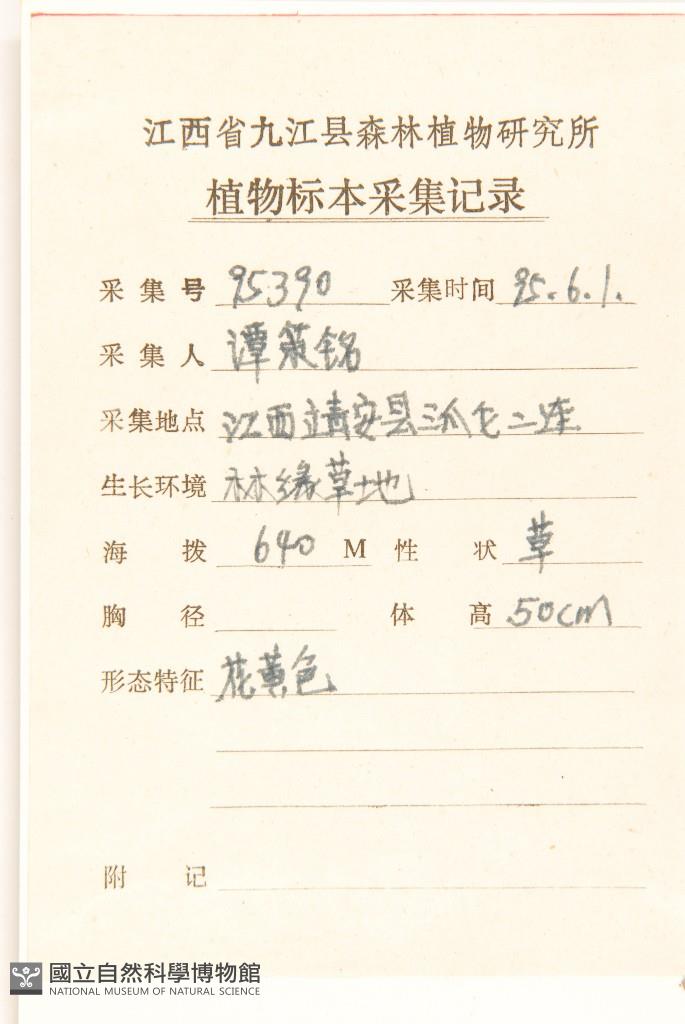 江西省九江县森林植物研究所
植物标本采集记录
采集号 95390 采集时间 95.6.1.
采集人 谭策铭
采集地点 江西靖安县三爪仑二连
生长环境 林缘草地
海拨 640 M 性状 草
胸径 体高 50cm
形态特征 花黄色
附记
國立自然科學博物館
NATIONAL MUSEUM OF NATURAL SCIENCE